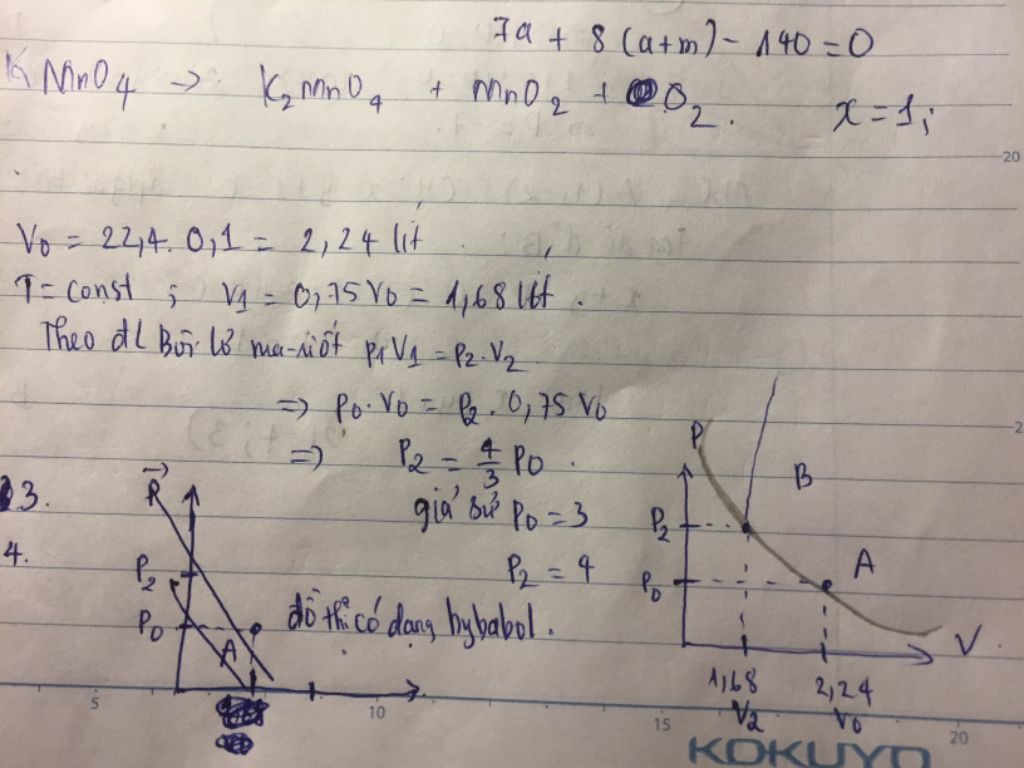 7a + 8 (a+m) - 140 = 0
KMnO4 → K2MnO4 + MnO2 + O2.
x = 1;
20
V0 = 22,4. 0,1 = 2,24 lít
T = const ; V1 = 0,75 V0 = 1,68 lít.
Theo đl Bôi lơ ma-riốt P1V1 = P2.V2
=> P0.V0 = P2. 0,75 V0
=> P2 = 4/3 P0.
giả sử P0 = 3
P2 = 4
3.
4.
P2
P0
A
đồ thị có dạng hybabol.
P
B
P2
A
P0
V
1,68
V2
2,24
V0
5
10
15
20
KOKUYO